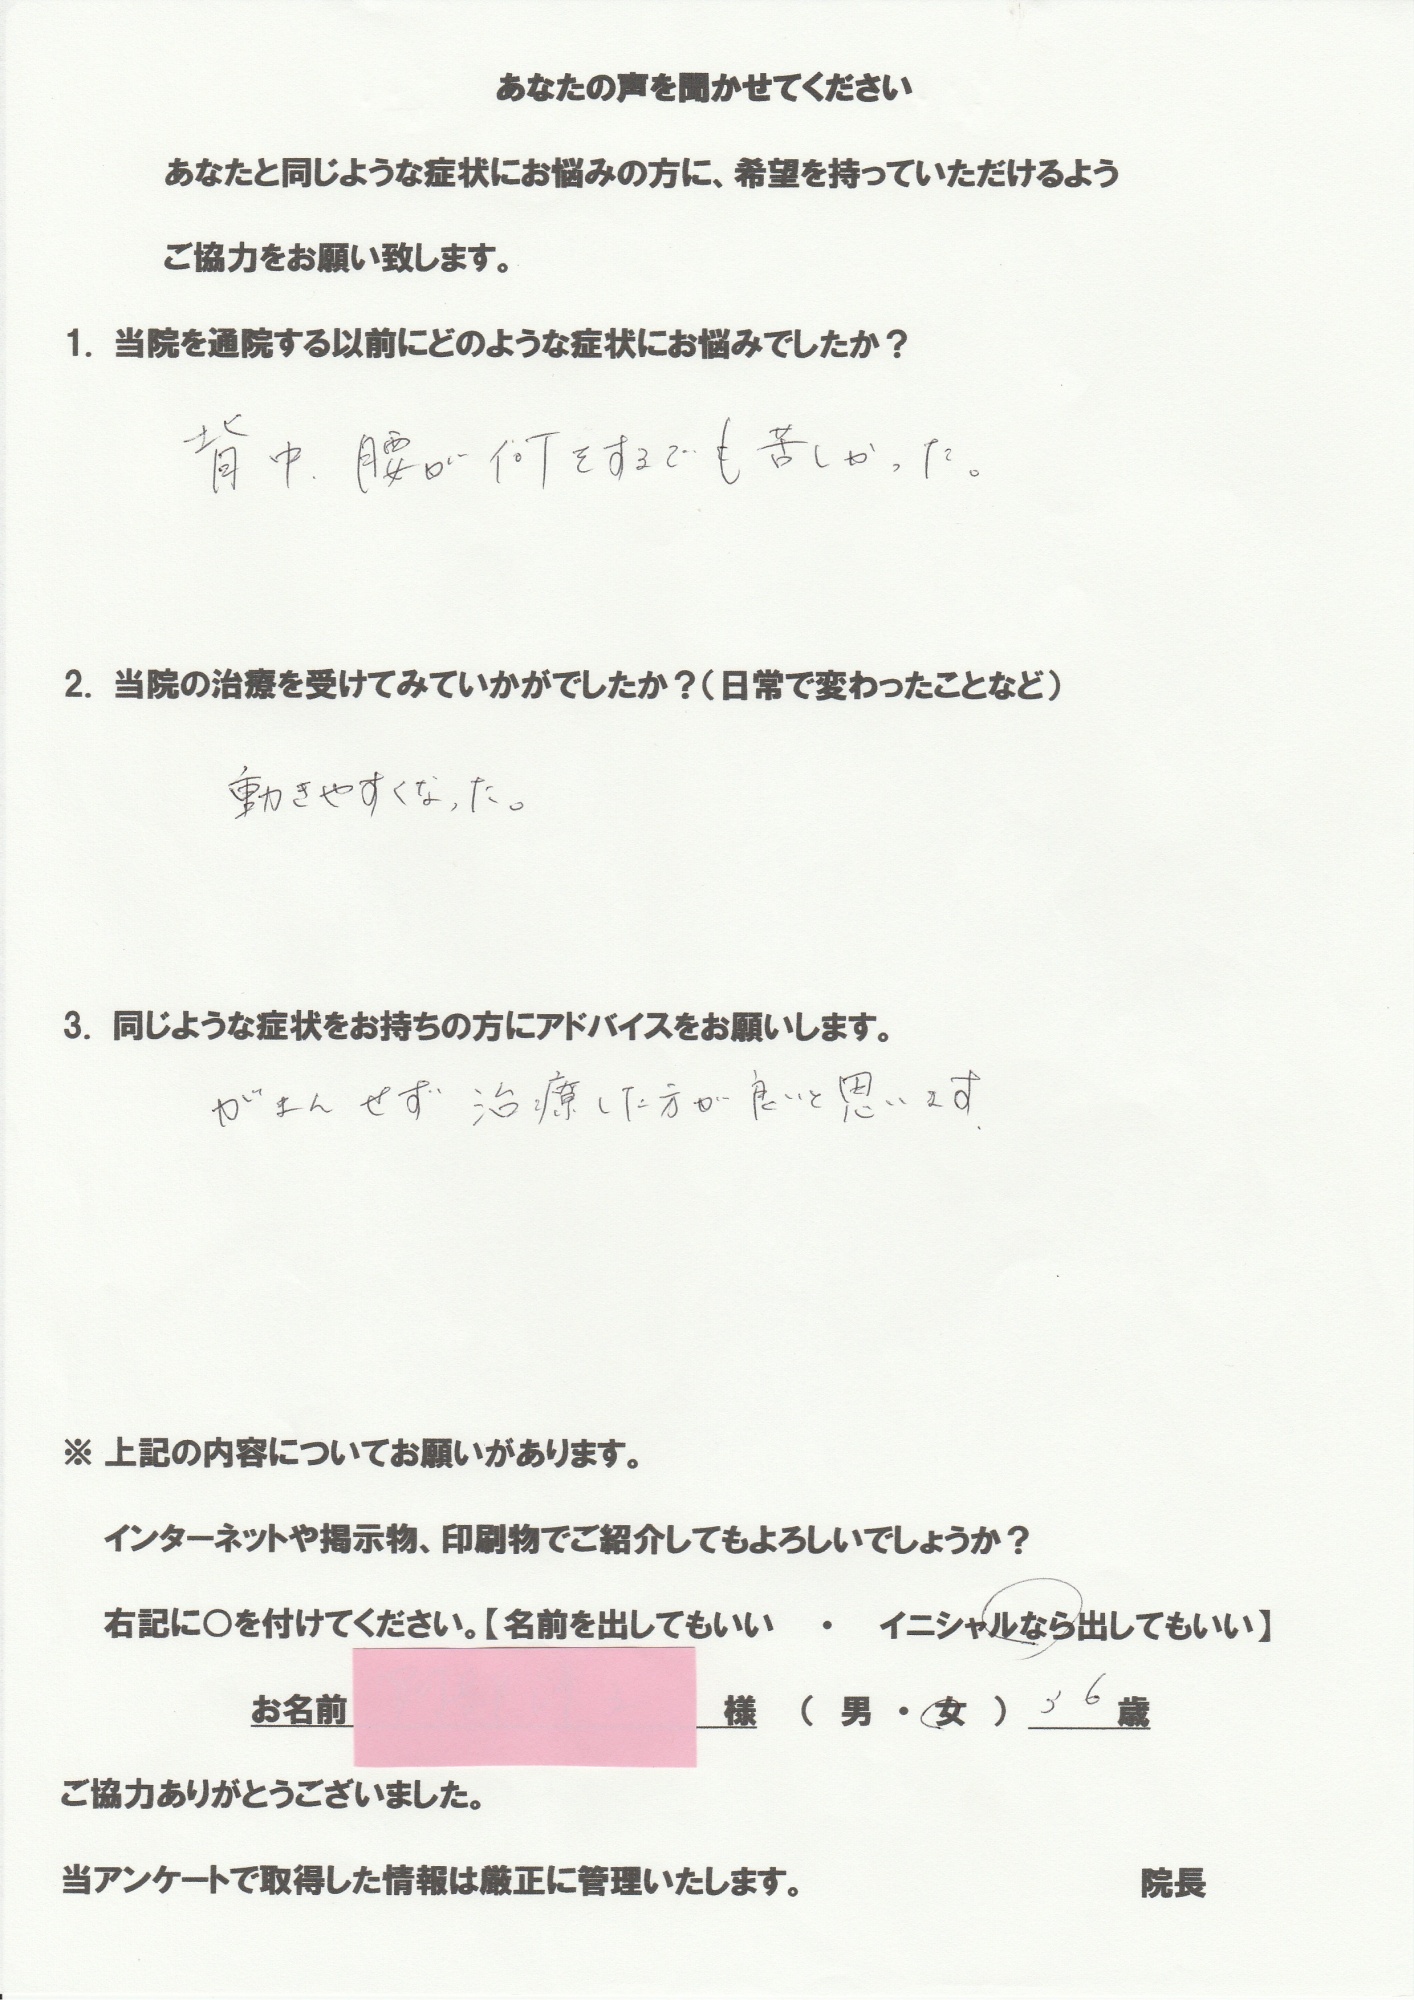 あなたの声を聞かせてください
あなたと同じような症状にお悩みの方に、希望を持っていただけるよう
ご協力をお願い致します。
1. 当院を通院する以前にどのような症状にお悩みでしたか？
背中、腰が何をするでも苦しかった。
2. 当院の治療を受けてみていかがでしたか？（日常で変わったことなど）
動きやすくなった。
3. 同じような症状をお持ちの方にアドバイスをお願いします。
がまんせず治療した方が良いと思います。
※ 上記の内容についてお願いがあります。
インターネットや掲示物、印刷物でご紹介してもよろしいでしょうか？
右記に○を付けてください。【名前を出してもいい ・ イニシャルなら出してもいい】
お名前 様 （ 男 ・ 女 ） 36歳
ご協力ありがとうございました。
当アンケートで取得した情報は厳正に管理いたします。 院長